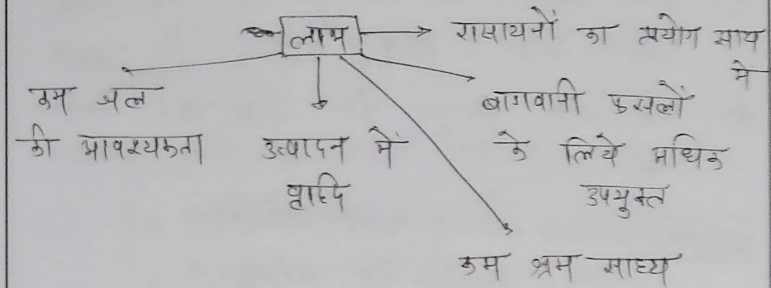 लाभ
रासायनों का प्रयोग साथ
में
कम जल
की आवश्यकता
उत्पादन में
वृद्धि
बागवानी फसलों
के लिये अधिक
उपयुक्त
कम श्रम साध्य